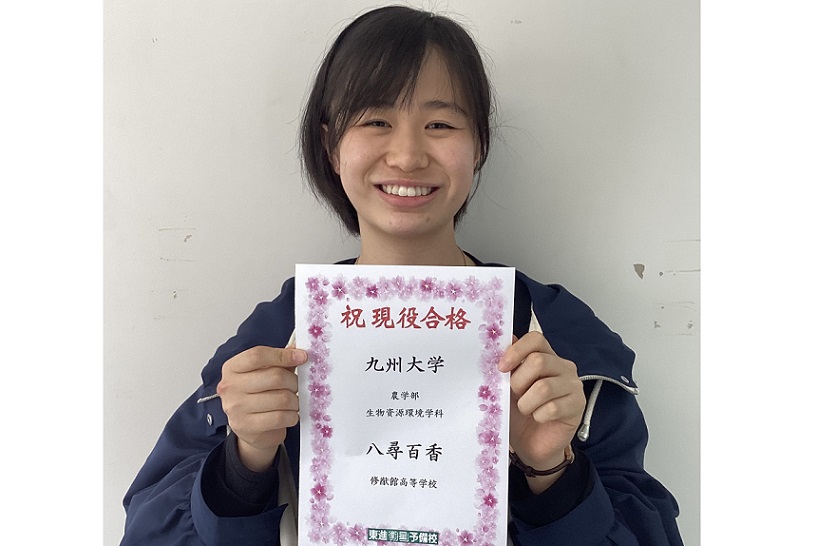 祝 現役合格
九州大学
農学部
生物資源環境学科
八尋百香
修猷館高等学校
東進衛星予備校